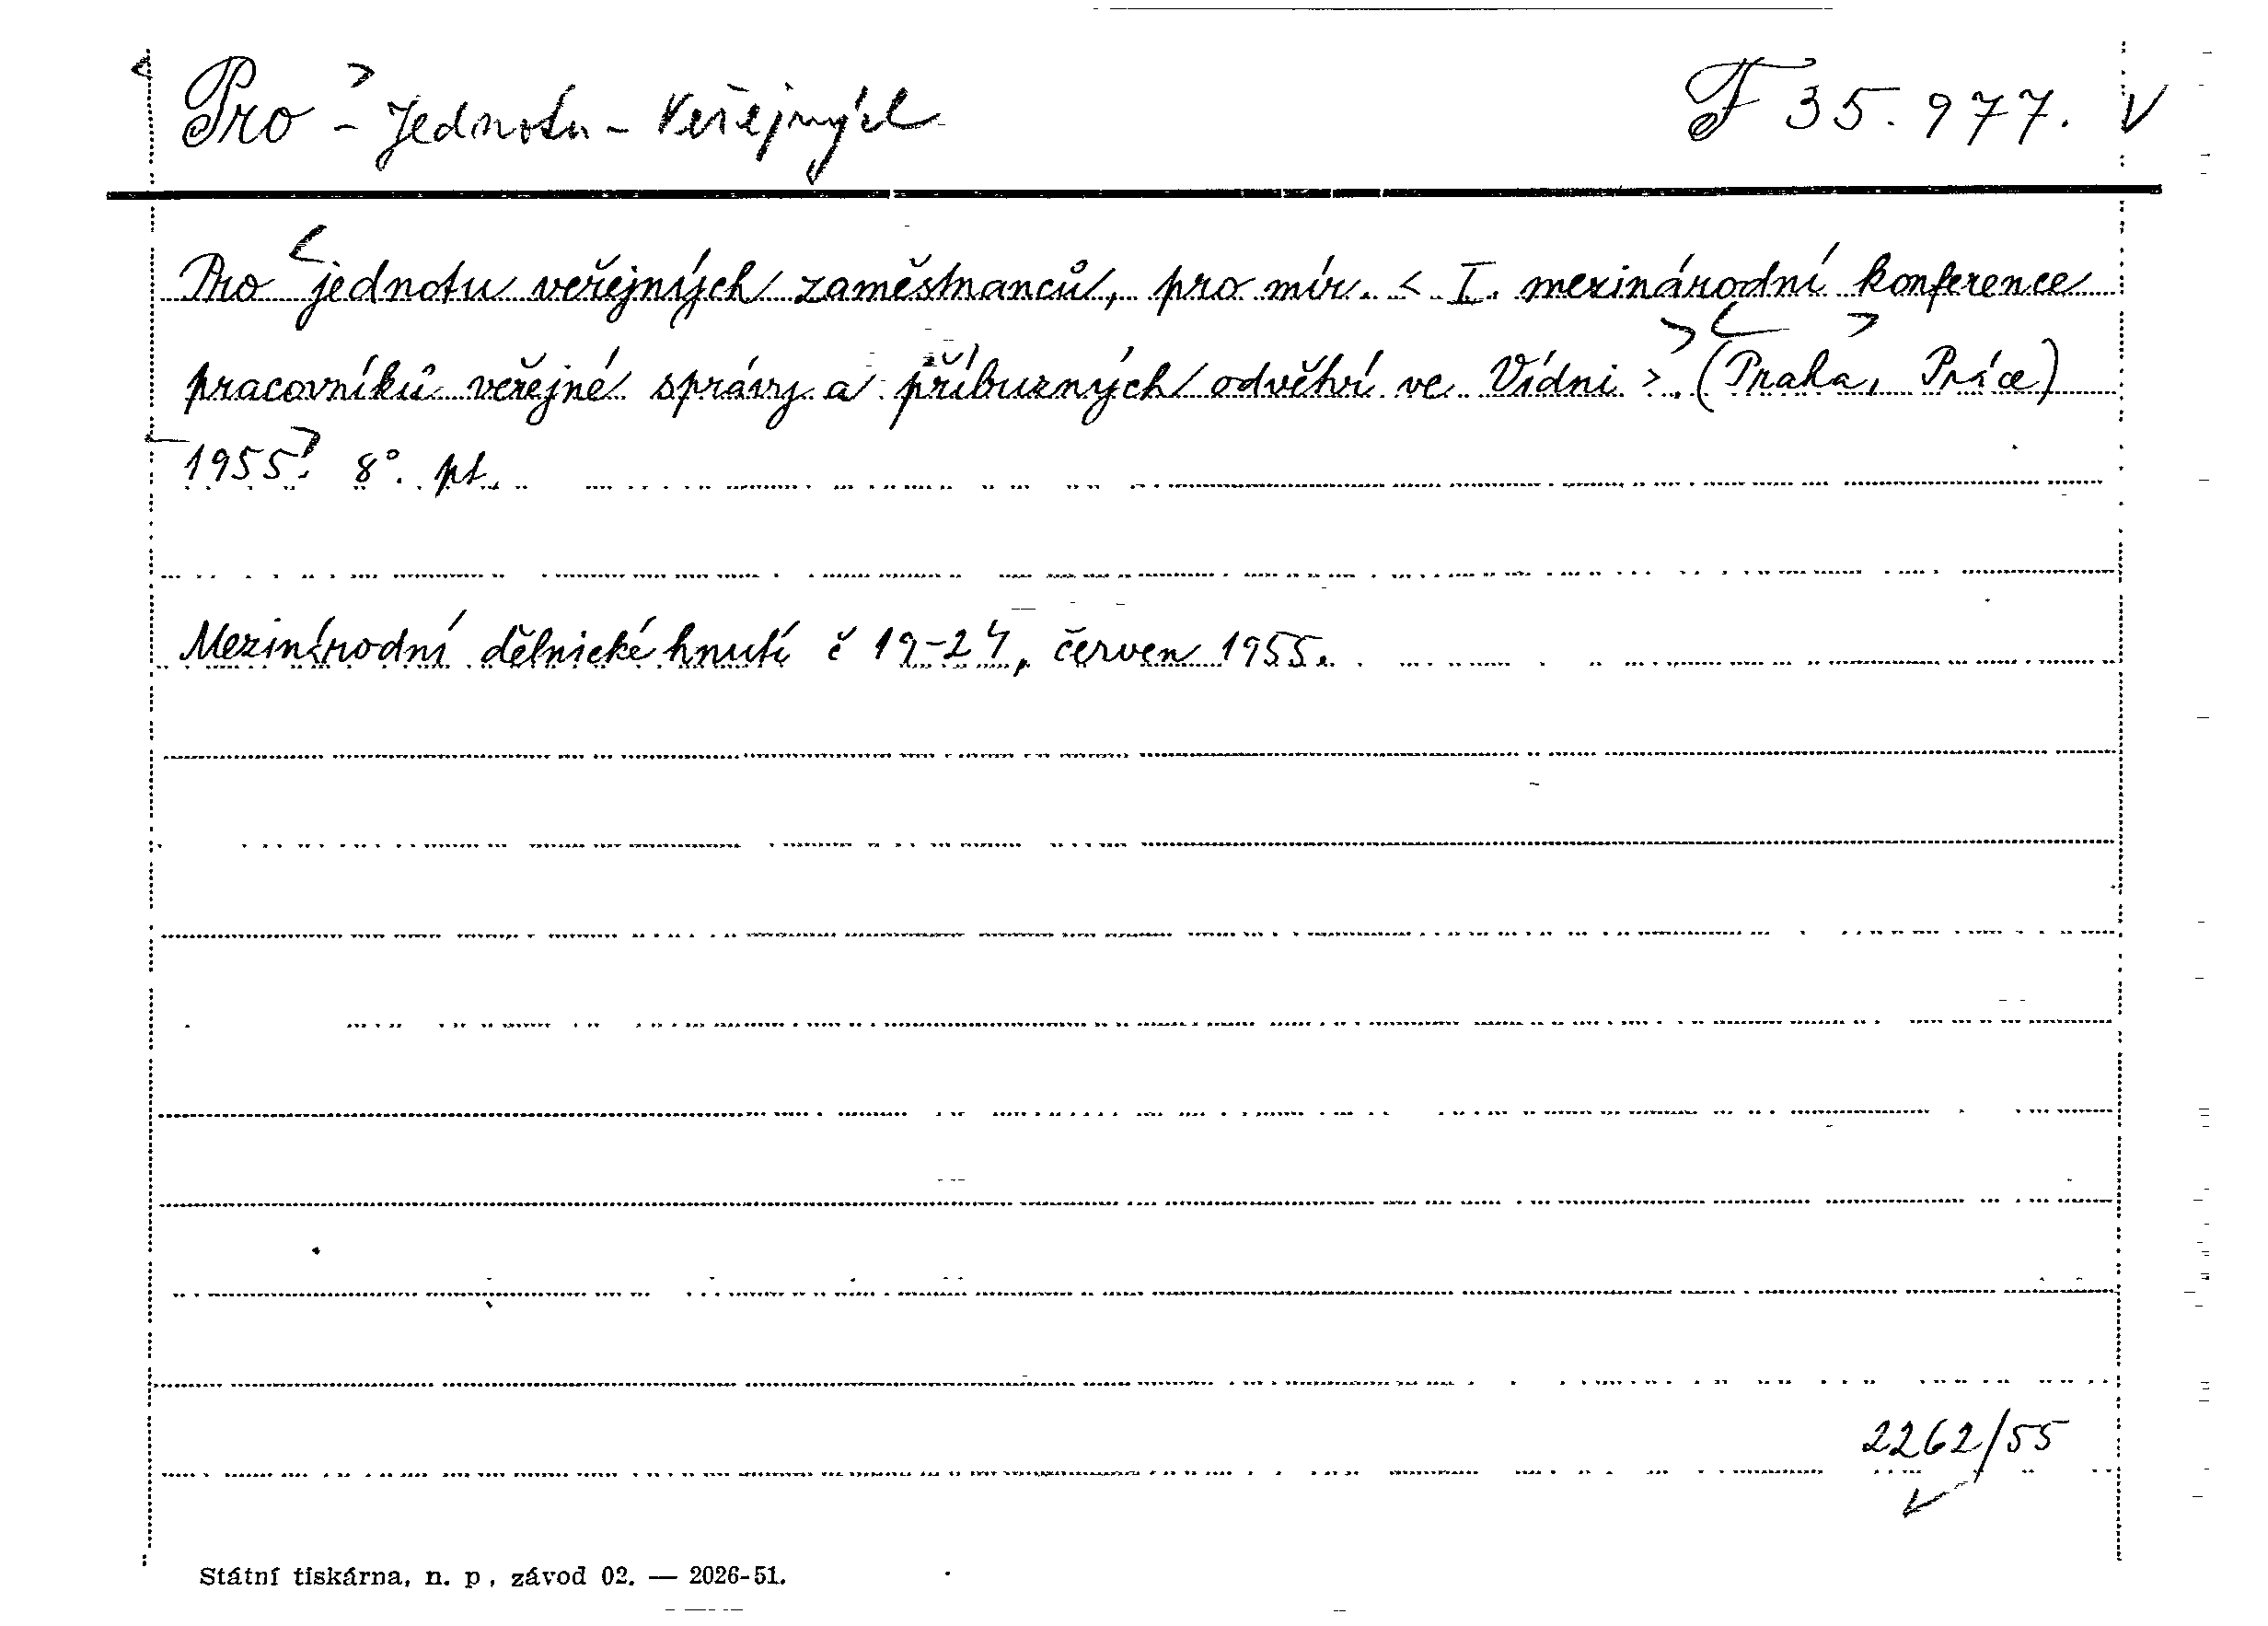 Pro - Jednotu - Veřejných F 35.977. V
Pro jednotu veřejných zaměstnanců, pro mír. < I. mezinárodní konference
pracovníků veřejné správy a příbuzných odvětví ve Vídni >. (Praha, Práce)
1955. 8°. pt.
Mezinárodní dělnické hnutí č 19-24, červen 1955.
2262/55
Státní tiskárna, n. p., závod 02. — 2026-51.